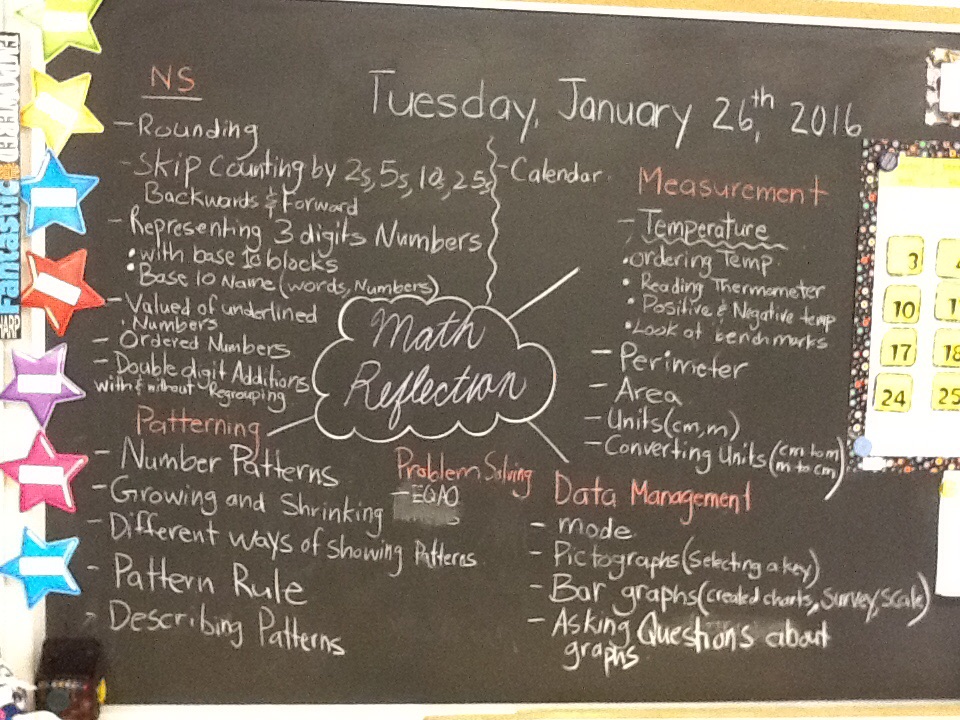 Tuesday, January 26th, 2016
NS
- Rounding
- Skip Counting by 2s, 5s, 10s, 25s
Backwards & Forward
- Representing 3 digits Numbers
• with base 10 blocks
• Base 10 Name (words, Numbers)
- Valued of underlined
Numbers
- Ordered Numbers
- Double digit Additions
with & without Regrouping
- Calendar
Math
Reflection
Measurement
- Temperature
• Ordering Temp.
• Reading Thermometer
• Positive & Negative temp
• Look at benchmarks
- Perimeter
- Area
- Units (cm, m)
- Converting Units (cm to m
m to cm)
Patterning
- Number Patterns
- Growing and Shrinking
- Different ways of showing Patterns
- Pattern Rule
- Describing Patterns
Problem Solving
- EQAO
Data Management
- mode
- Pictographs (selecting a key)
- Bar graphs (created charts, survey, scale)
- Asking Questions about
graphs
Fantastic
3
10
17 18
24 25